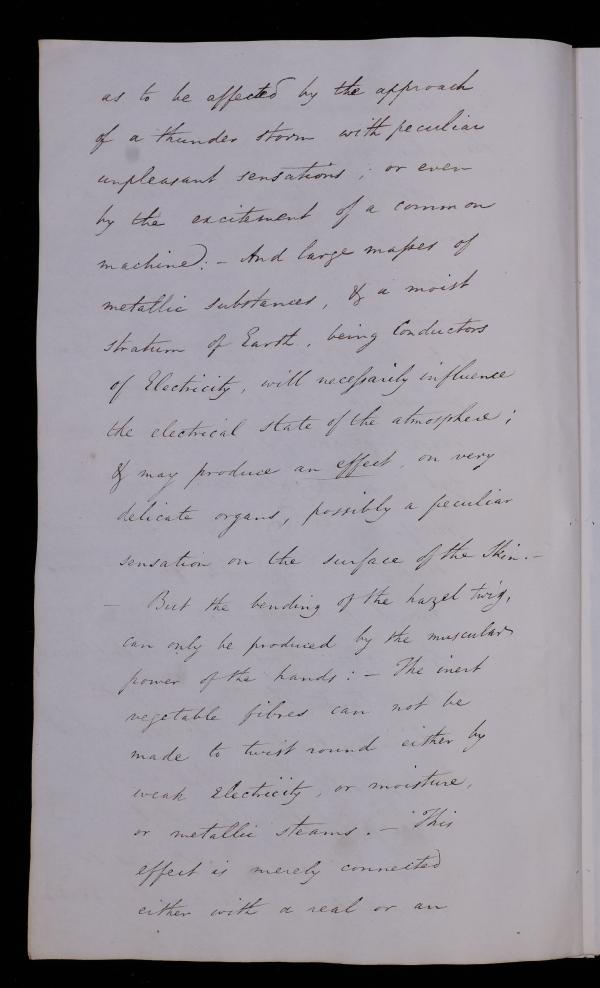 as to be affected by the approach
of a thunder storm with peculiar
unpleasant sensations; or even
by the excitement of a common
machine: - And large masses of
metallic substances, & a moist
stratum of Earth, being Conductors
of Electricity, will necessarily influence
the electrical state of the atmosphere;
& may produce an effect, on very
delicate organs, possibly a peculiar
sensation on the surface of the Skin. -
- But the bending of the hazel twig,
can only be produced by the muscular
power of the hands: - The inert
vegetable fibres can not be
made to twist round either by
weak Electricity, or moisture,
or metallic steams. - This
effect is merely connected
either with a real or an